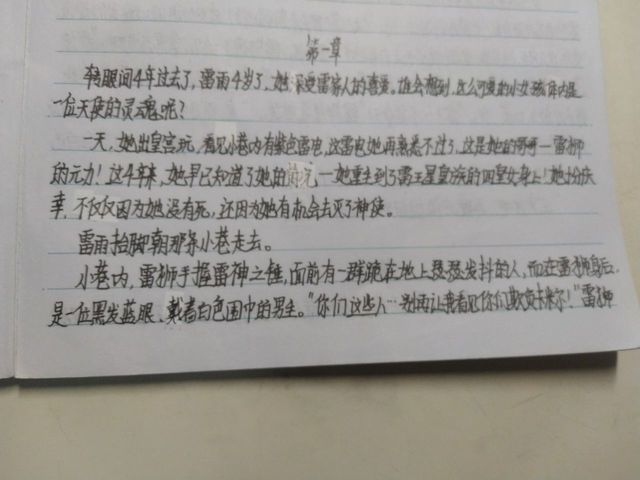 第一章
转眼间4年过去了,雷雨4岁了,她深受雷家人的喜爱。谁会想到,这么可爱的小女孩体内是
一位天使的灵魂呢?
一天,她出皇宫玩,看见小巷内有紫色雷电,这雷电她再熟悉不过了,这是她的哥哥一雷狮
的元力!这4年来,她早已知道了她的 一她重生到了雷王星皇族的四皇女身上!她十分庆
幸,不仅仅因为她没有死,还因为她有机会去灭了神使。
雷雨抬脚朝那条小巷走去。
小巷内,雷狮手握雷神之锤,面前有一群跪在地上瑟瑟发抖的人,而在雷狮身后,
是一位黑发蓝眼、戴着白色围巾的男生。“你们这些人…别再让我看见你们欺负卡米尔!”雷狮